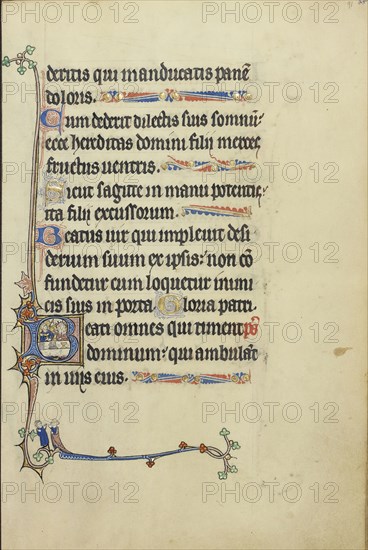 deritis qui manducatis pane͂
doloris.
Cum dederit dilectis suis somnu͂:
ecce hereditas domini filii merces
fructus uentris.
Sicut sagitte in manu potentis:
ita filii excussorum.
Beatus uir qui impleuit desi
derium suum ex ipsis: non co͂
fundetur cum loquetur inimi
cis suis in porta. Gloria patri
Beati omnes qui timent ps̄
dominum: qui ambulāt
in uiis eius.
PHOTO 12